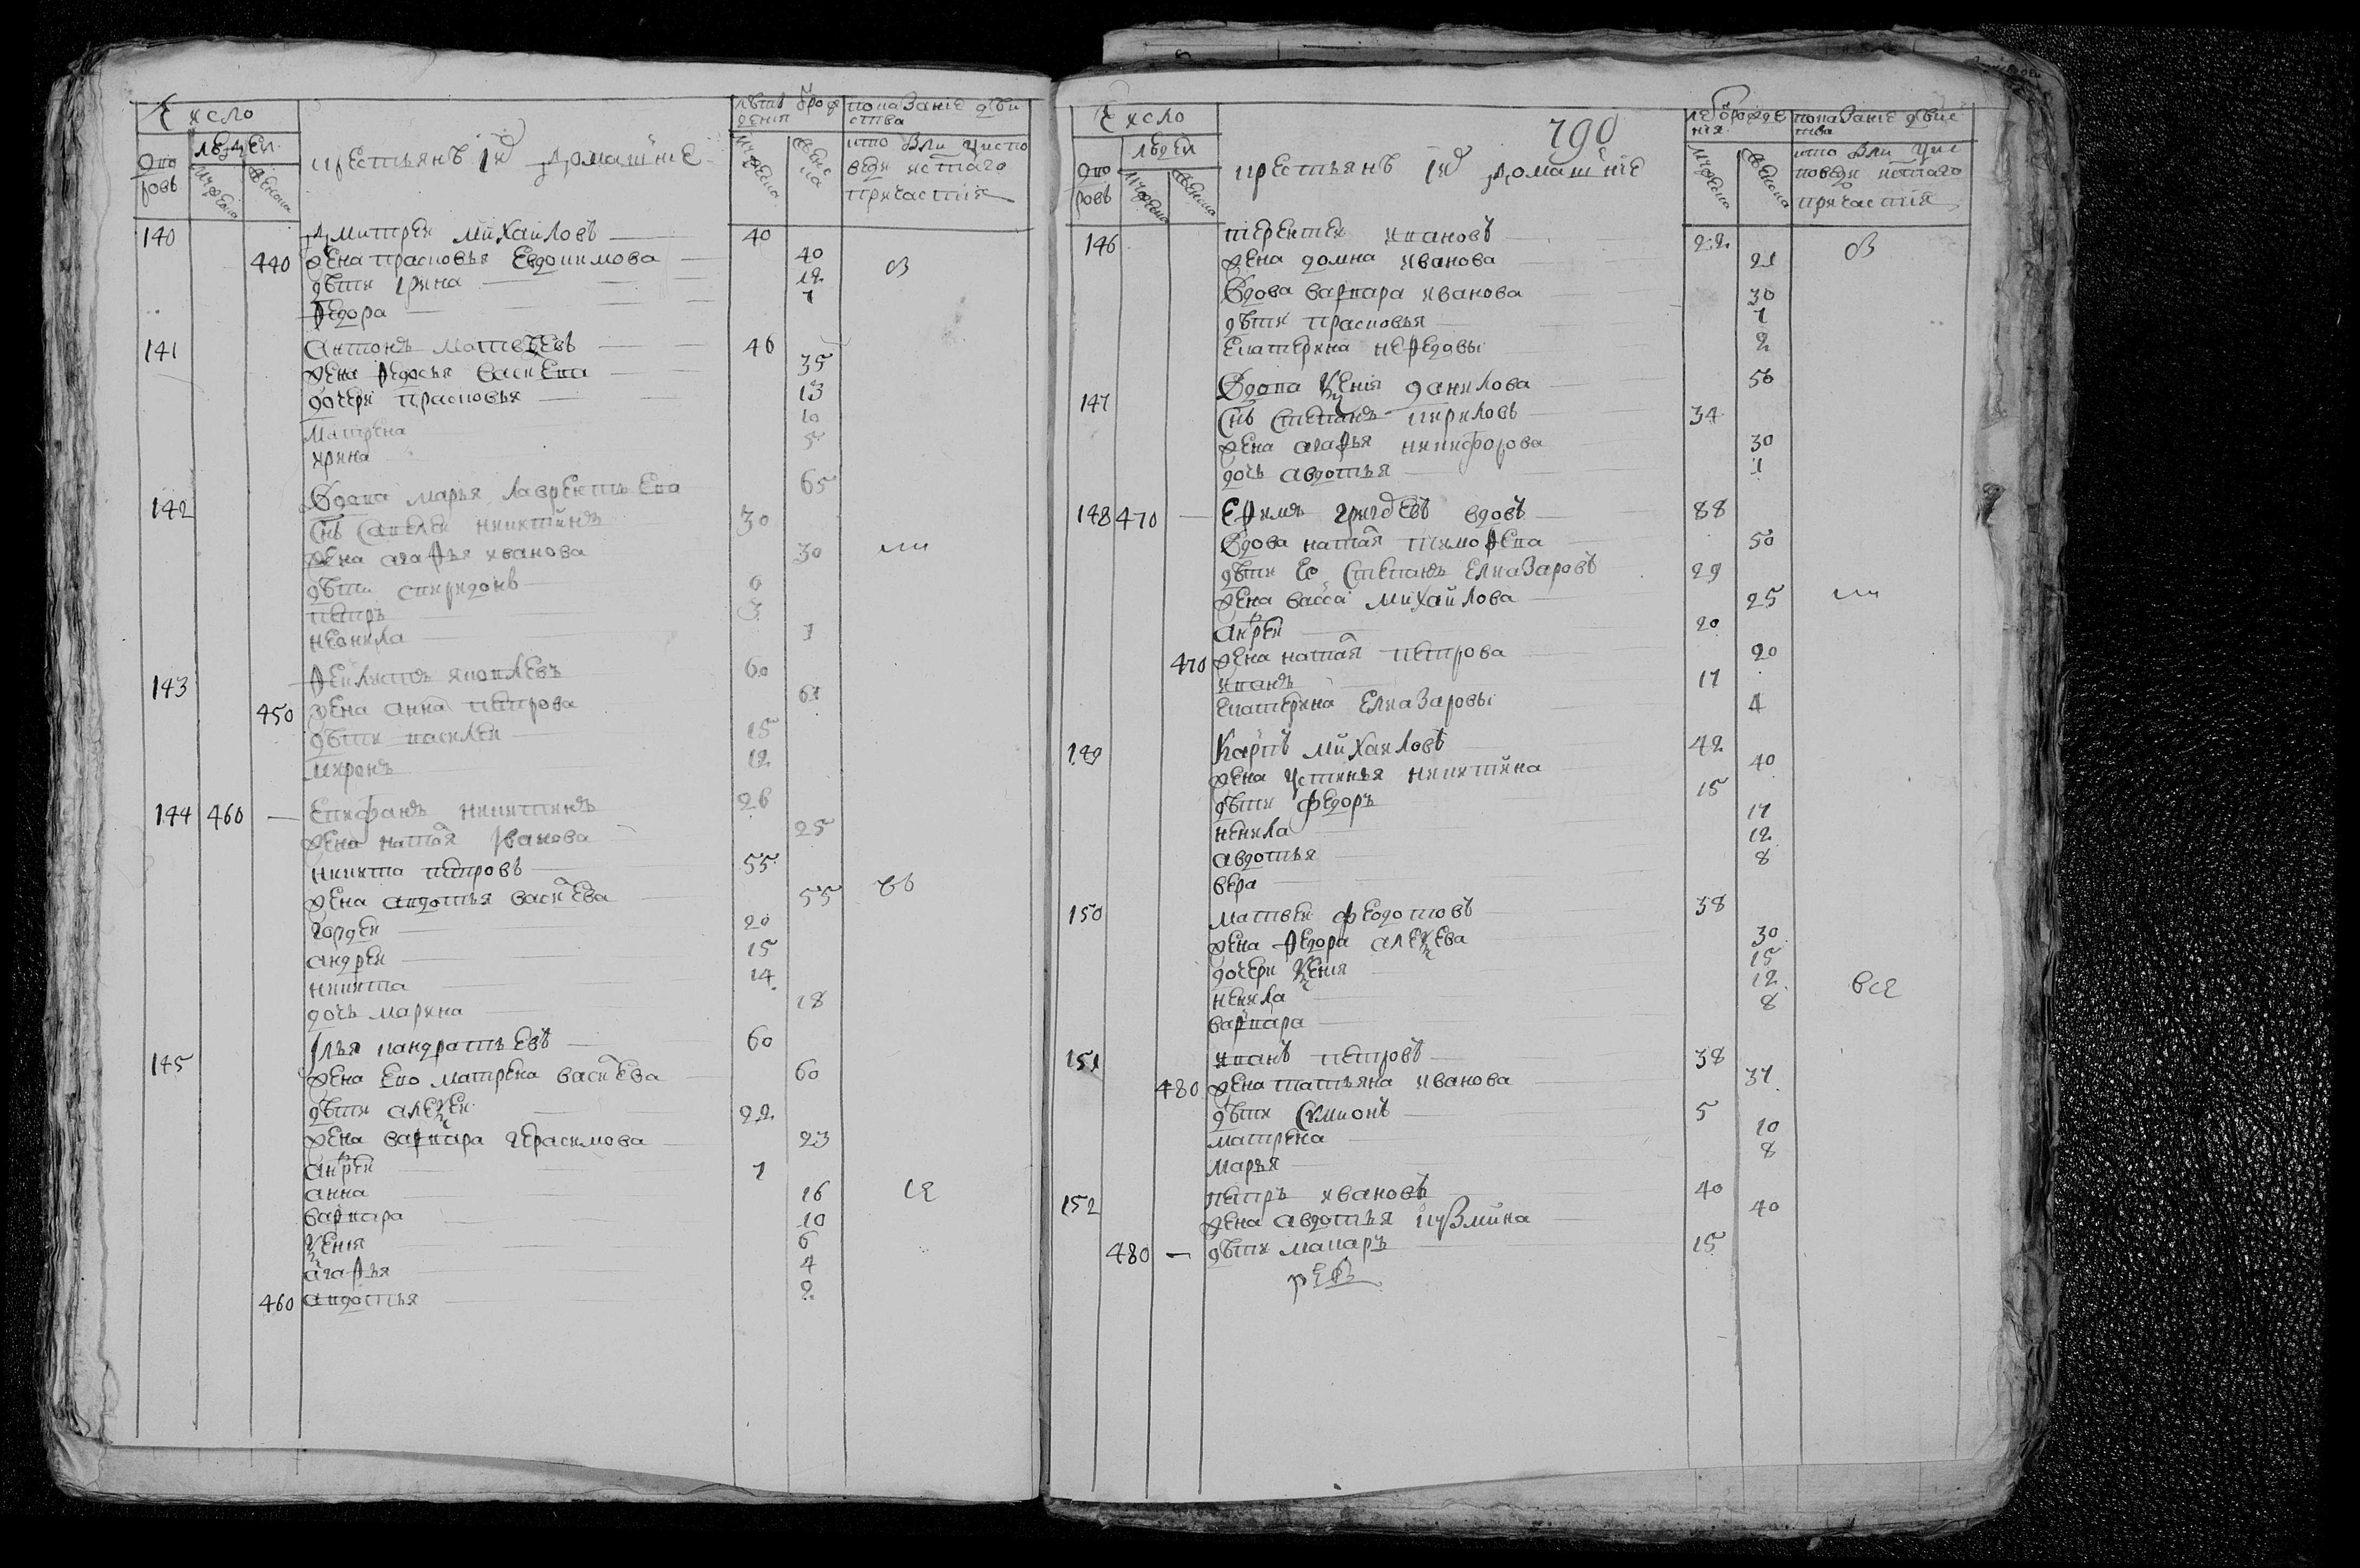 Число
Дво
ровъ
людеи
мужеска
женска
крестьянъ iд домашнiе
лѣтъ ѿ рож
денiя
мужеска
женс
ка
показанiе дѣи
ства
кто былъ у испо
веди и стаго
причастия
140 Дмитреи михаиловъ 40
440 жена прасковья Евдокимова 40
дѣти iрина 12
Ѳедора 7
141 антонъ матвѣевъ 46
жена Ѳедосья васильева 35
дочери прасковья 13
Матрена 10
ирина 5
142 вдова марья лаврентьева 65
Снъ савелеи никитинъ 30
жена агаѲья иванова 30
дѣти спиридонъ 6
петръ 3
неонила 7
143 Ѳеклистъ яковлевъ 60
450 жена анна петрова 61
дѣти василеи 15
миронъ 12
144 460 Епифанъ никитинъ 26
жена натая Iванова 25
никита петровъ 55
жена авдотья васиева 55
гордеи 20
андреи 15
никита 14
дочь марина 18
145 Iлья кандратьевъ 60
жена Ево матрена васиева 60
дѣти алеѯеи 22
жена варвара герасимова 23
анреи 7
анна 16
варвара 10
ѯения 6
агаѲья 4
460 авдотья 2
Число
790
Дво
ровъ
людеи
мужеска
женска
крестьянъ iд домашнiе
лѣ ѿ рожде
нiя
мужеска
женска
показанiе дѣис
тва
кто былъ у ис
поведи и стаго
причастiя
146 терентеи ивановъ 22
жена домна иванова 21
Вдова варвара иванова 30
дѣти прасковья 7
Екатерина неѲедовы 2
Вдова ѯенiя данилова 56
147 Снъ степанъ кириловъ 34
жена агаѲья никифорова 30
дочь авдотья 1
148 470 ЕѲимъ григоевъ вдовъ 88
Вдова натая тимоѲева 50
дѣти Ео степанъ Елиазаровъ 29
жена васса михаилова 25
анреи 20
470 жена натая петрова 20
иванъ 17
Екатерина Елиазаровы 4
149 Карпъ михаиловъ 42
жена устинья никитина 40
дѣти федоръ 15
ненила 17
авдотья 12
вера 8
150 матвеи федотовъ 38
жена Ѳедора алеѯева 30
дочери ѯения 15
ненила 12
варвара 8
все
151 иванъ петровъ 38
480 жена татьяна иванова 37
дѣти симионъ 5
матрена 10
марья 8
152 петръ ивановъ 40
жена авдотья кузмина 40
480 дѣти макаръ 15